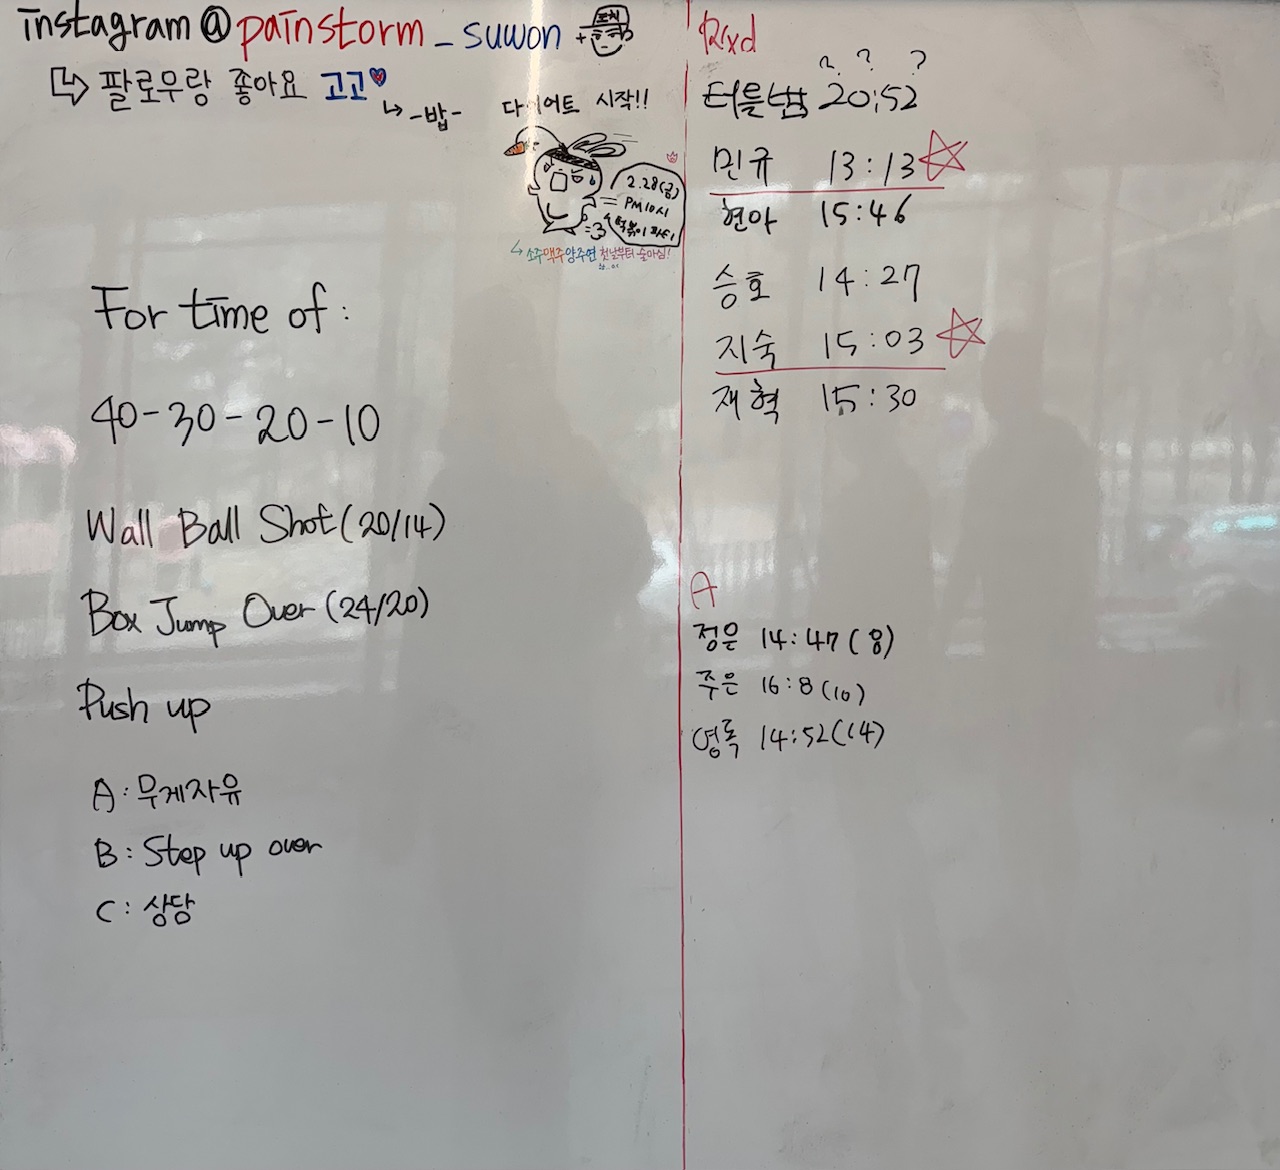 instagram@painstorm_suwon +
코치
팔로우랑 좋아요 고고
-밥-
다이어트 시작!!
2.28(금)
PM10시
떡볶이 파티
소주맥주양주연 첫날부터 술마심!
For time of:
40-30-20-10
Wall Ball Shot (20/14)
Box Jump Over (24/20)
Push up
A: 무게자유
B: Step up over
C: 상담
Rxd
? ? ?
20:52
민규 13:13
현아 15:46
승호 14:27
지숙 15:03
재혁 15:30
A
정은 14:47(8)
주은 16:8(10)
영록 14:52(14)